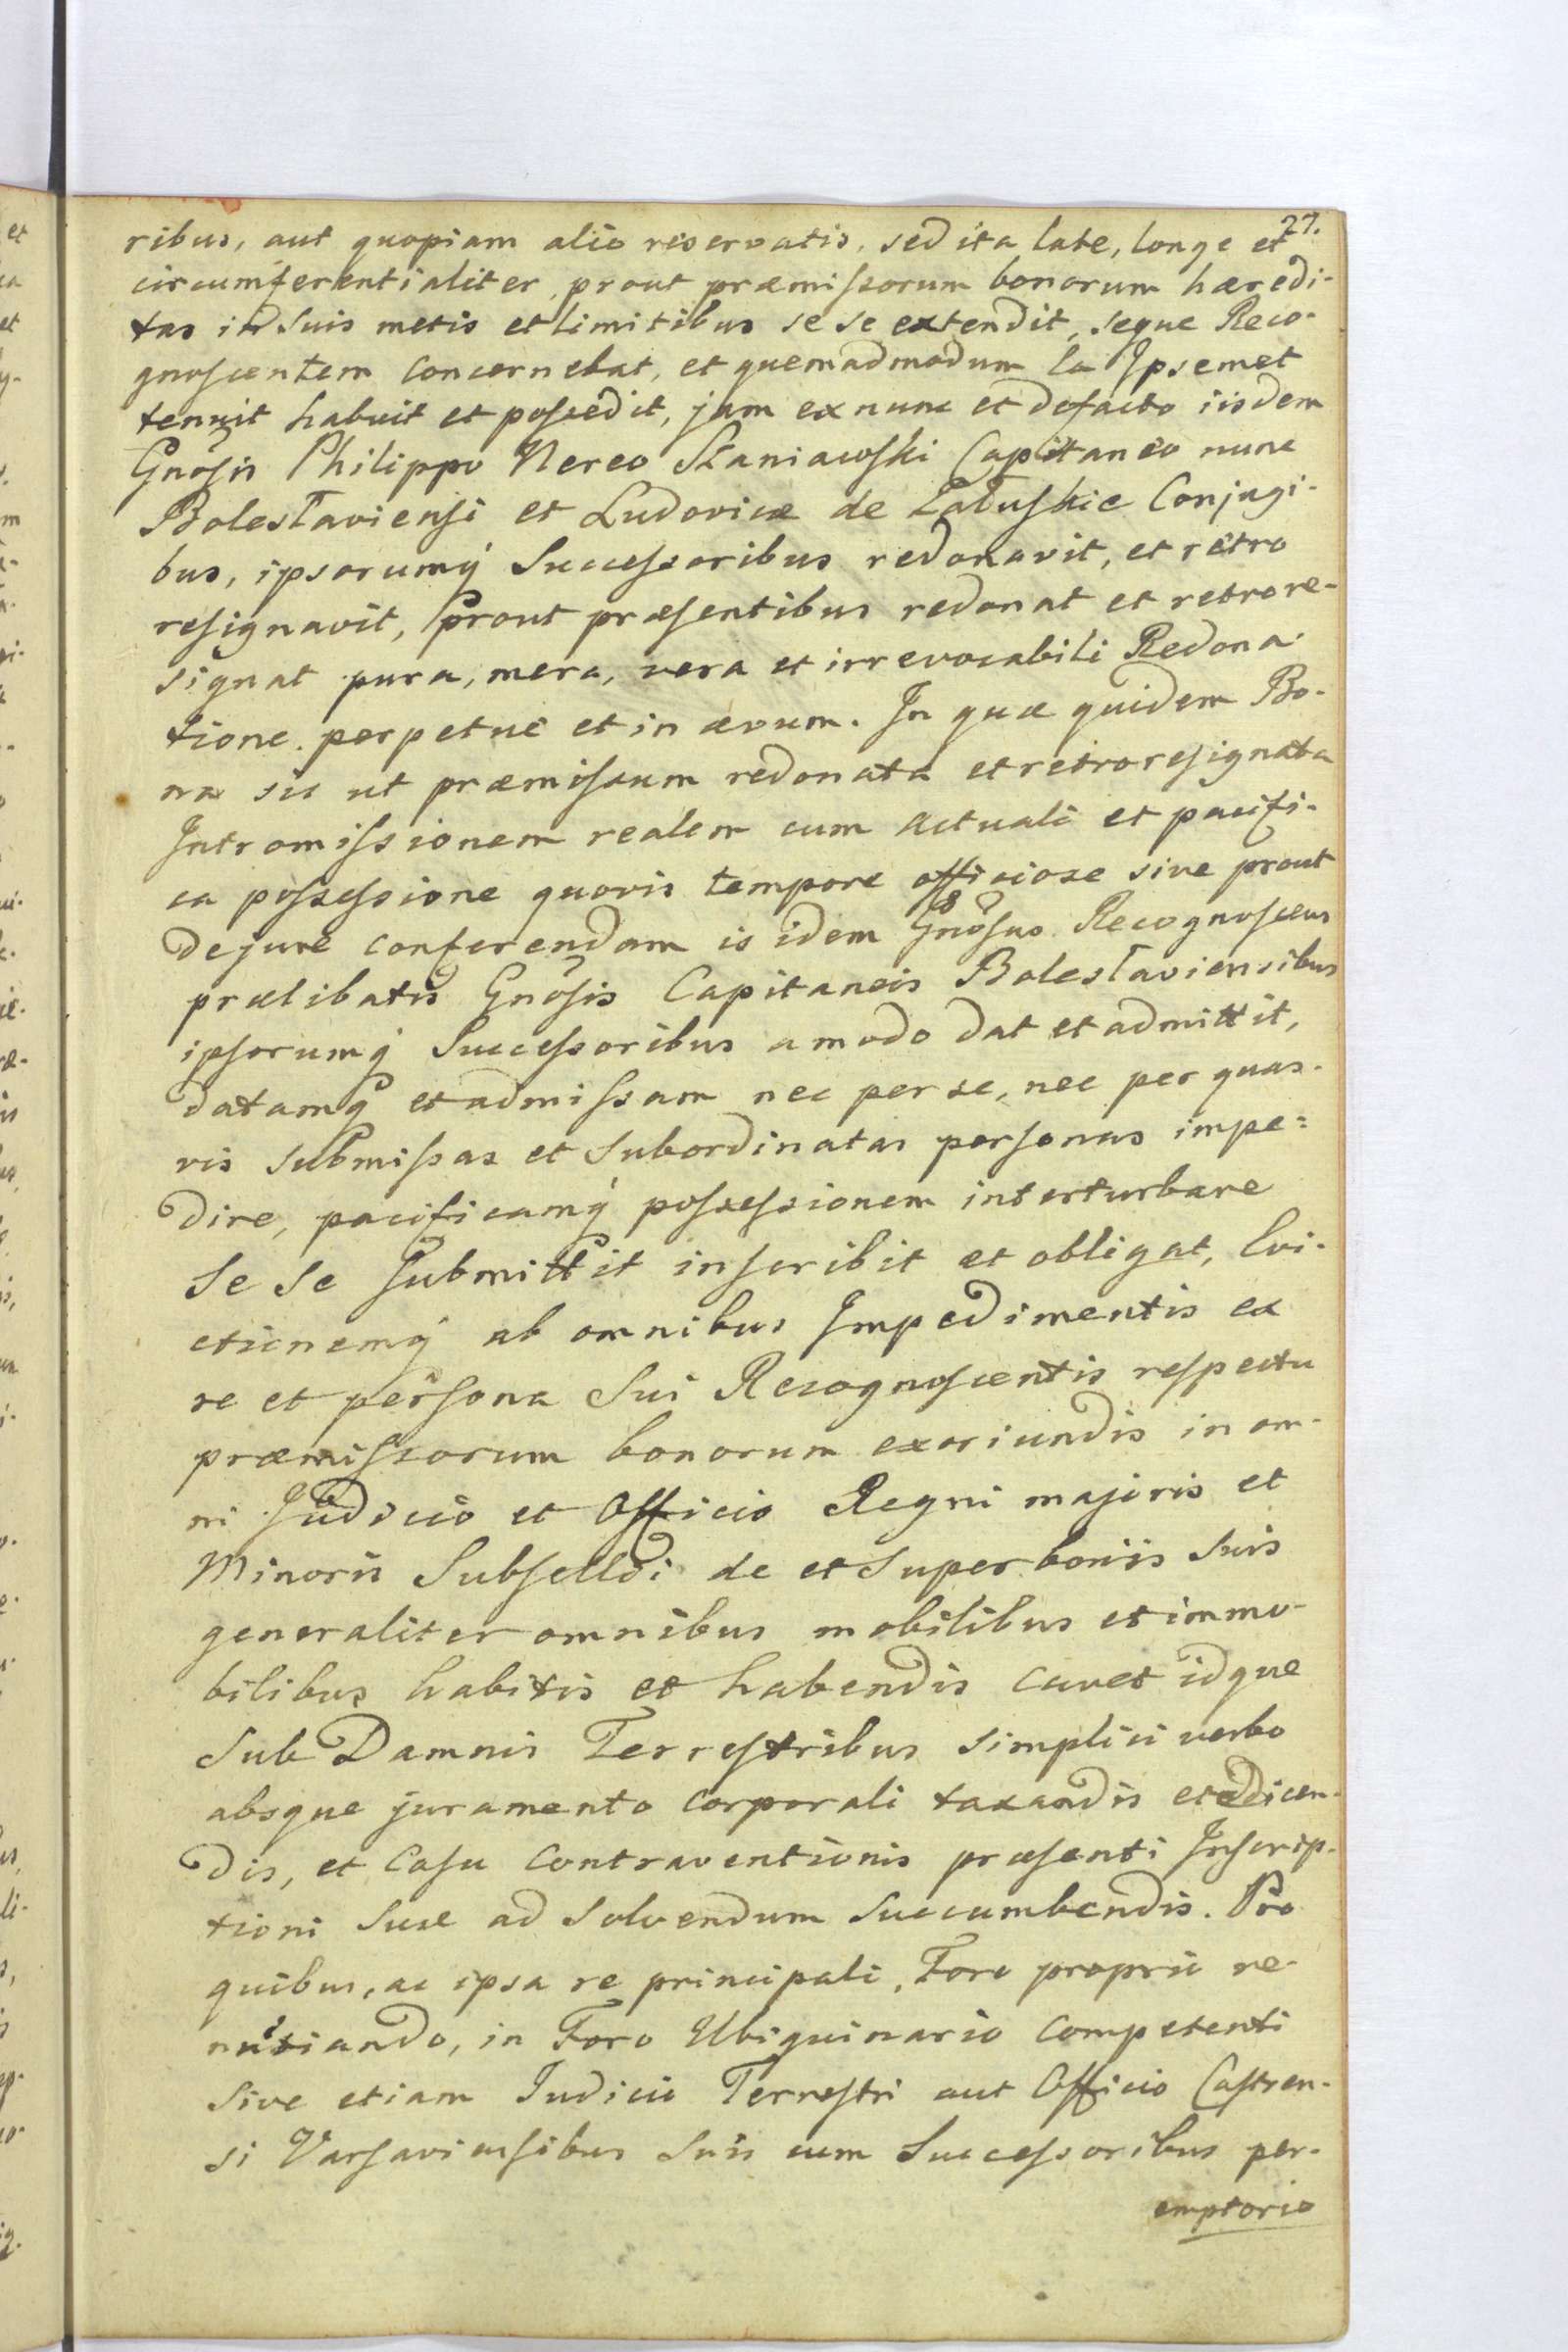 27.
ribus, aut quopiam alio reservatis, sed ita late, longe et
circumferentialiter, prout præmissorum bonorum hæredi-
tas in suis metis et limitibus se se extendit, seque Reco-
gnoscentem concernebat, et quemadmodum ea Ipsemet
tenuit habuit et possedit, jam ex nunc et defacto iisdem
Gnosis Philippo Nereo Szaniawski Capitaneo nunc
Bolesłaviensi et Ludovicæ de Załuskie Conjugi-
bus, ipsorumq́ Successoribus redonavit, et retro
resignavit, prout præsentibus redonat et retrore-
signat pura, mera, vera et irrevocabili Redona-
tione. perpetue et in ævum. In quæ quidem Bo-
na sic ut præmissum redonata et retroresignata
Intromissionem realem cum actuali et pacifi-
ca possessione quovis tempore officiose sive prout
de jure conferendam is idem Gnosus Recognoscens
prælibatis Gnosis Capitaneis Bolesłaviensibus
ipsorumq́ Successoribus amodo dat et admittit,
datamq́ et admissam nec per se, nec per quas-
vis submissas et subordinatas personas impe=
dire, pacificamq́ possessionem interturbare
se se submittit inscribit et obligat, Evi-
ctionemq́ ab omnibus Impedimentis ex
re et persona sui Recognoscentis respectu
præmissorum bonorum exoriundis in om-
ni Judicio et Officio Regni majoris et
Minoris Subsellii de et super boniis suis
generaliter omnibus mobilibus et immo-
bilibus habitis et habendis cavet idque
sub Damnis Terrestribus simplici verbo
absque juramento corporali taxandis et edicen-
dis, et casu contraventionis præsenti Inscrip-
tioni suæ ad solvendum succumbendis. Pro
quibus, ac ipsa re principali, Foro proprio re-
nuntiando, in Foro Ubiquinario competenti
sive etiam Judicio Terrestri aut Officio Castren-
si Varsaviensibus suis cum Successoribus per-
emptorio